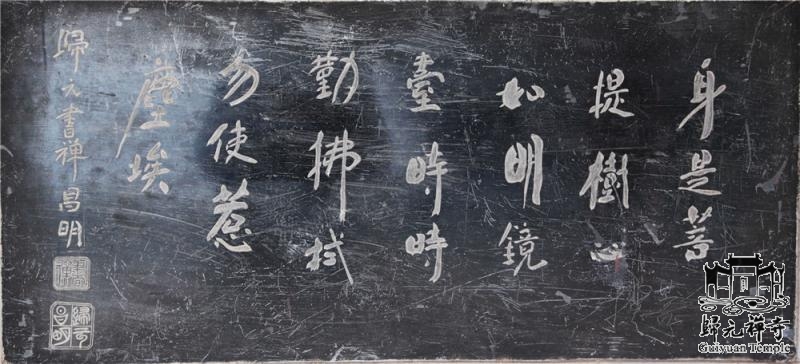 身是菩
提樹心
如明鏡
臺時時
勤拂拭
勿使惹
塵埃
歸元書禅昌明
歸元昌明
歸元禅寺
Guiyuan Temple